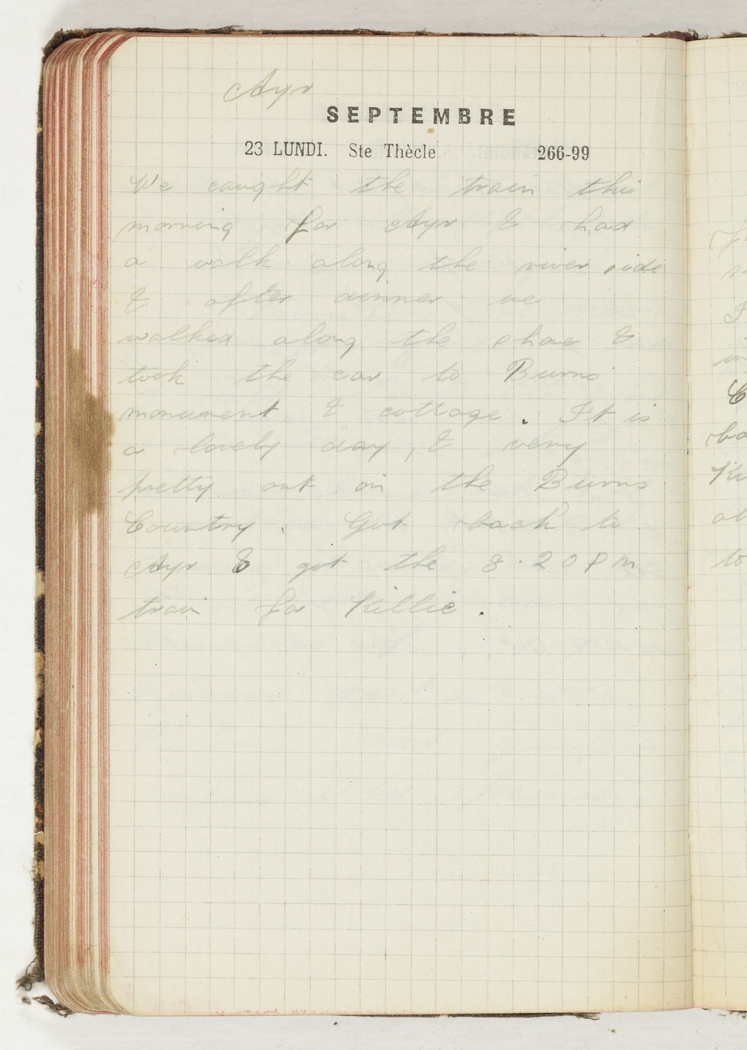 Ayr
SEPTEMBRE
23 LUNDI. Ste Thècle 266-99
We caught the train this
morning for Ayr & had
a walk along the river side
& after dinner we
walked along the shore &
took the car to Burns
monument & cottage. It is
a lovely day, & very
pretty out in the Burns
Country. Got back to
Ayr & got the 8.20 PM
train for Killie.